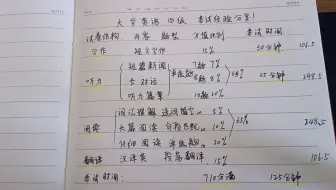 大学英语四级 考试经验分享!
试卷结构 内容 题型 分值比例 考试时间
写作 短文写作 15% 30分钟 106.5
短篇新闻 7题 7%
听力 长对话 单选题 8题 8% 35% 25分钟 248.5
听力篇章 10题 20%
词汇理解 选词填空 5%
阅读 长篇阅读 10% 35% 248.5
仔细阅读 单选题 20%
翻译 汉译英 段落翻译 15% 106.5
考试时间: 710分满 125分钟